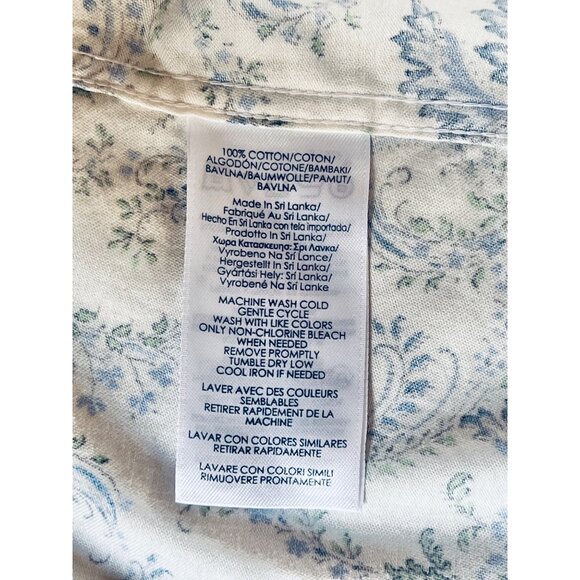 100% COTTON/COTON/
ALGODÓN/COTONE/BAMBAKI/
BAVLNA/BAUMWOLLE/PAMUT/
BAVLNA
Made In Sri Lanka/
Fabriqué Au Sri Lanka/
Hecho En Sri Lanka con tela importada/
Prodotto In Sri Lanka/
Χωρα Κατασκευησ: Σρι Λανκα/
Vyrobeno Na Srí Lance/
Hergestellt In Sri Lanka/
Gyártási Hely: Srí Lanka/
Vyrobené Na Srí Lanke
MACHINE WASH COLD
GENTLE CYCLE
WASH WITH LIKE COLORS
ONLY NON-CHLORINE BLEACH
WHEN NEEDED
REMOVE PROMPTLY
TUMBLE DRY LOW
COOL IRON IF NEEDED
LAVER AVEC DES COULEURS
SEMBLABLES
RETIRER RAPIDEMENT DE LA
MACHINE
LAVAR CON COLORES SIMILARES
RETIRAR RAPIDAMENTE
LAVARE CON COLORI SIMILI
RIMUOVERE PRONTAMENTE